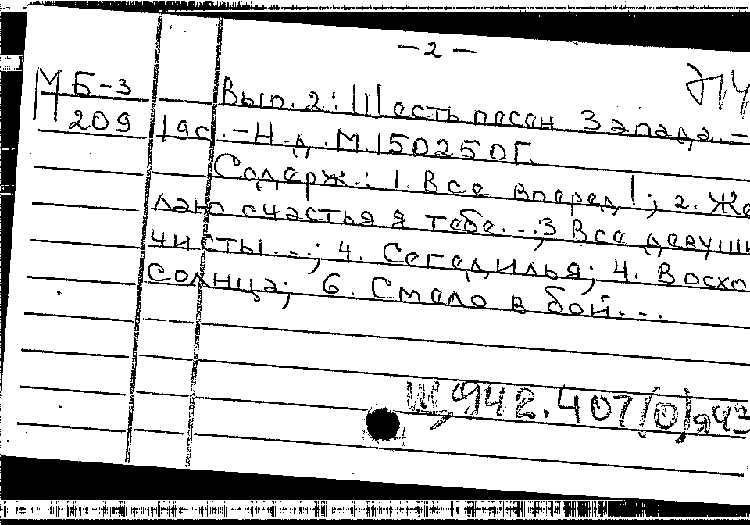 — 2 —
МБ-3 Вып. 2: Шесть песен Запада. –
209 19с. – Н.д. М.15025ОГ.
Содерж.: 1. Все вперед!; 2. Же
лаю счастья я тебе...; 3 Все девуш
чисты...; 4. Сегедилья; 4. Восхо
солнца; 6. Смело в бой...
Щ942.407(0)я43